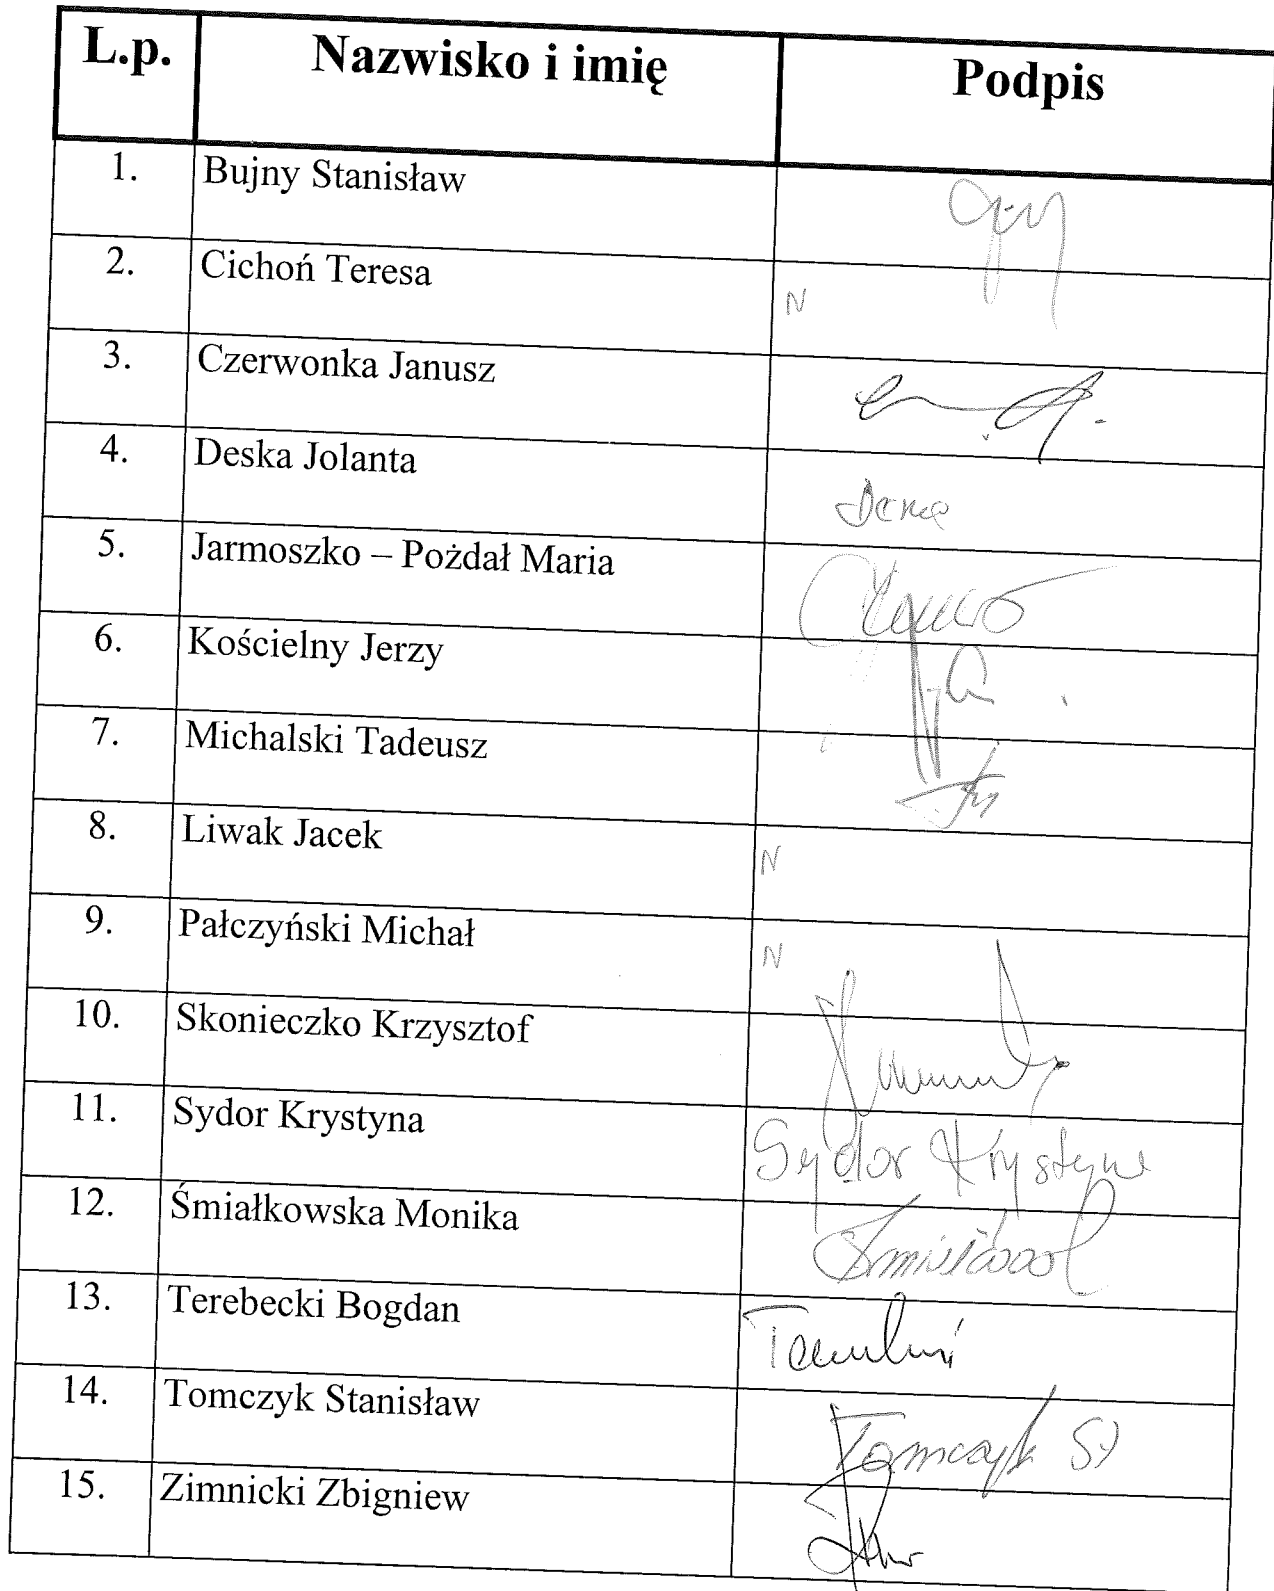 L.p. Nazwisko i imię Podpis
1. Bujny Stanisław
2. Cichoń Teresa N
3. Czerwonka Janusz
4. Deska Jolanta
5. Jarmoszko – Pożdał Maria
6. Kościelny Jerzy
7. Michalski Tadeusz
8. Liwak Jacek N
9. Pałczyński Michał N
10. Skonieczko Krzysztof
11. Sydor Krystyna Sydor Krystyna
12. Śmiałkowska Monika
13. Terebecki Bogdan
14. Tomczyk Stanisław Tomczyk St
15. Zimnicki Zbigniew